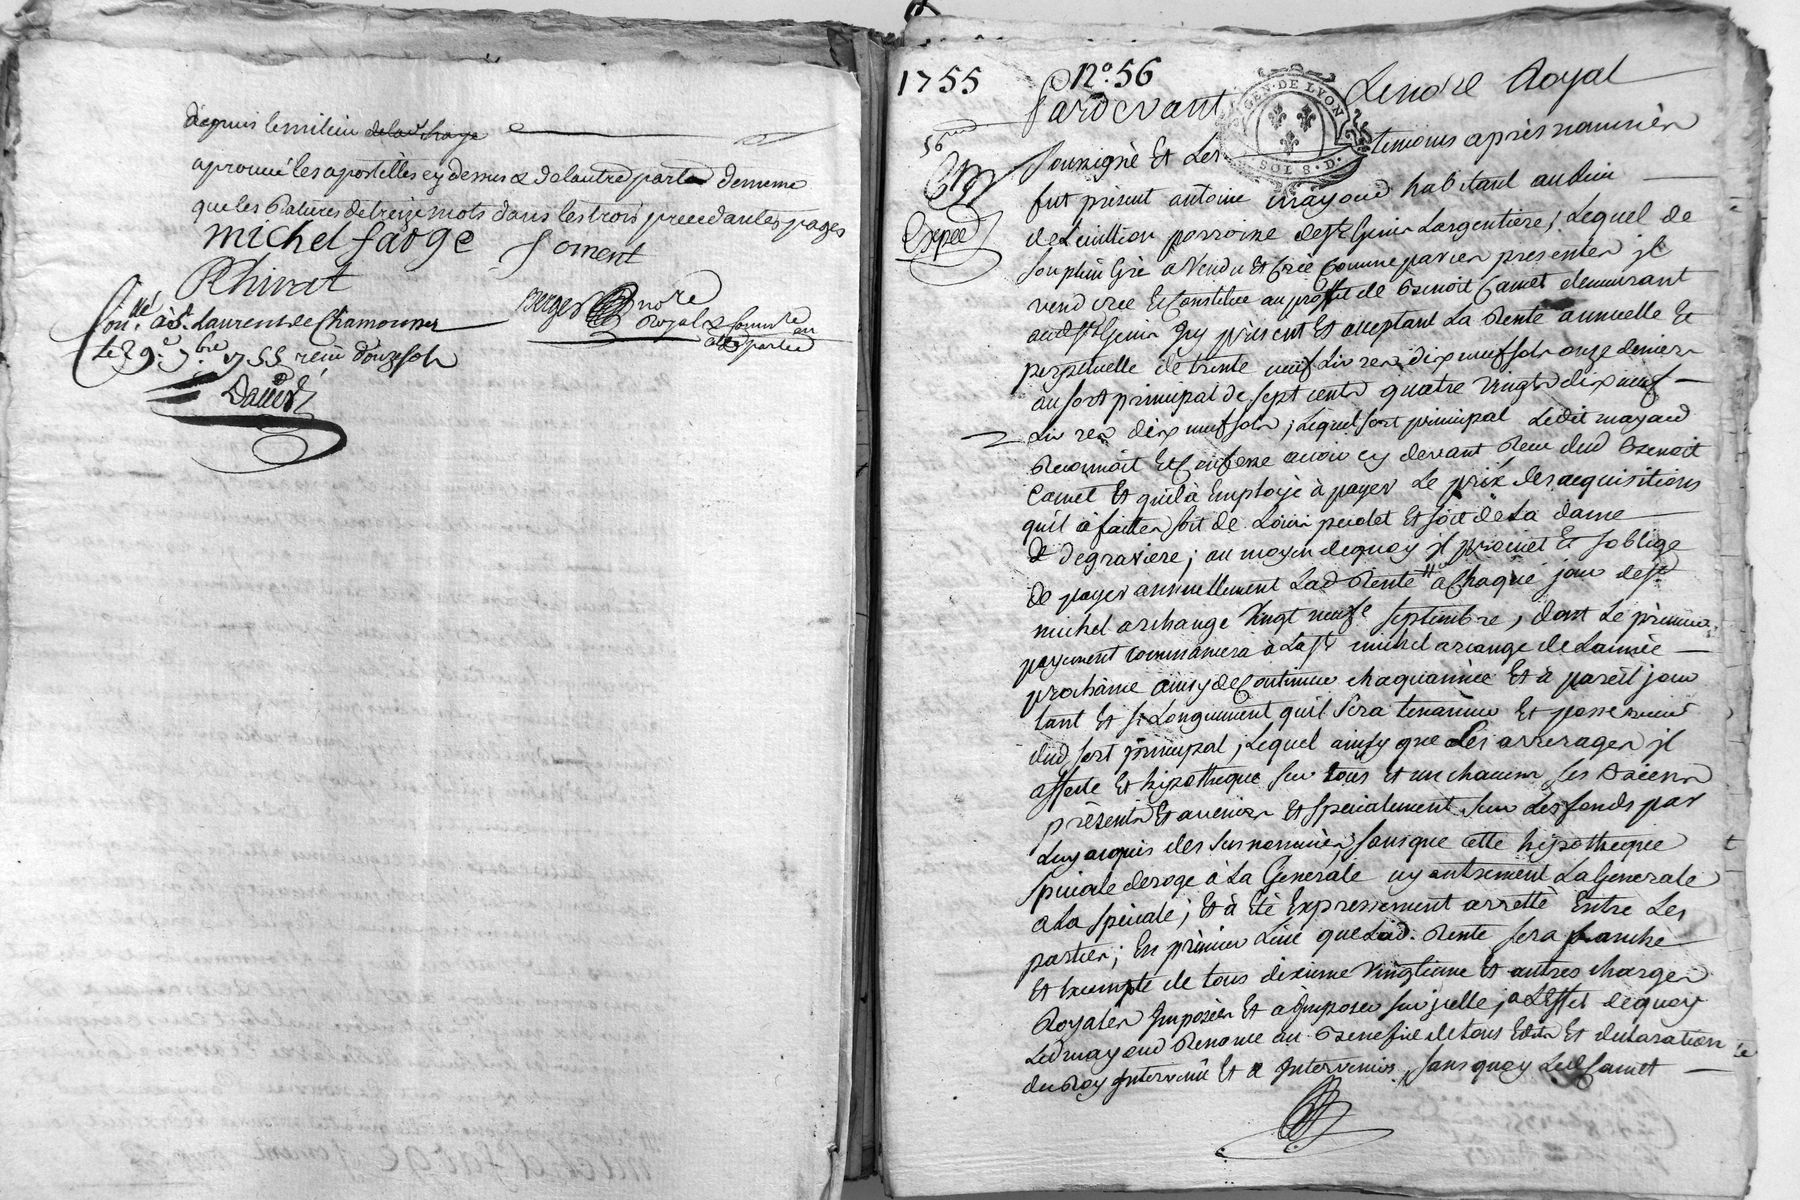 depuis le milieu de la d. page
aprouué les apostilles cy dessus & de lautre part de meme
que les Ratures de treize mots dans les trois precedantes pages
michel farge foment
Thinet
Con.lé à St. Laurent de Chamousset
Le 29.e 7.bre 1755 reçu douze sols
Berger no.re
Royal &
David
1755 N.o 56
56
GEN. DE LYON
SOL 8. D.
Expée
Pardevant Lenore Royal
soussigné Et Les temoins après nommés
fut présent antoine mayoud habitant au lieu
de parroisse de St. Genis Largentiere, Lequel de
son plein Gré a Vendu Et Créé Comme par ces presentes jl
vend crée Et Constitue au proffit de Benoit Camet demeurant
aud. St. Genis Jcy présent Et acceptant La Rente annuelle Et
perpetuelle de trente neuf Livres dix neuf sols onze deniers
au sort principal de sept cents quatre Vingts dix neuf
Livres dix neuf sols, Lequel sort principal Ledit mayoud
Reconnoit Et Confesse avoir cy devant Reçu dud. Benoit
Camet Et quil à Employé à payer Le prix des acquisitions
quil à faites soit de Louis peudet Et soit de La dame
de degraviere; au moyen dequoy jl promet Et soblige
de payer annuellement Lad. Rente # a Chaque jour de St.
michel archange Vingt neuf.e septembre, dont Le premier
payement commancera à La St. michel arcange de Lannée
prochaine ainsy de Continuer chaquannée Et à pareil jour
tant Et si Longuement quil Sera tenancier Et possesseur
dud. sort principal, Lequel ainsy que Les arrerages jl
affecte Et hipotheque sur tous et un chacuns ses Biens
présents Et avenirs Et specialement sur Les fonds par
Luy acquis des susnommés, sans que cette hipothecque
speciale deroge à La Generale ny autrement La Generale
a La speciale; Et à Eté Expressement arretté Entre Les
parties; En premier Lieu que Lad. Rente sera franche
Et Exempte de tous dixieme vingtieme Et autres charges
Royales Imposées Et a Imposer sur jcelle, a L'Effet dequoy
Led. mayoud Renonce au Benefice de tous Edits Et declaration
du Roy Intervenus Et a Intervenir, sans quoy Led. Camet